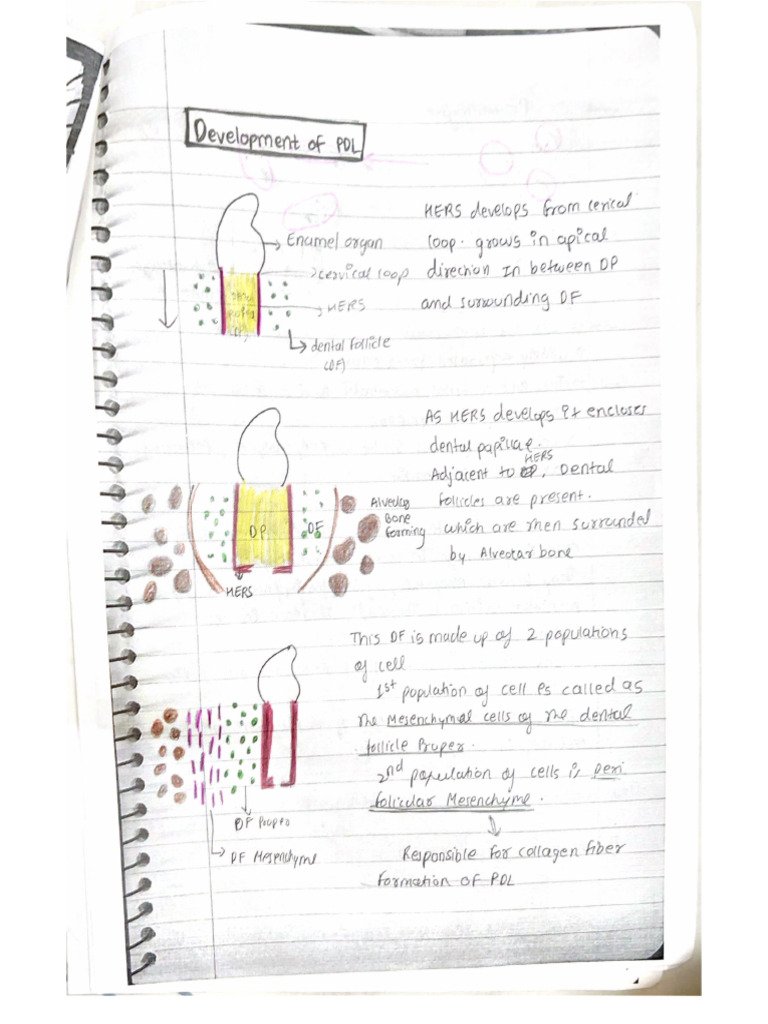 Development of PDL
Enamel organ
cervical loop
HERS
dental follicle
(DF)
HERS develops from cerical
loop. grows in apical
direction In between DP
and surrounding DF
As HERS develops it encloses
dental papillae.
HERS
Adjacent to, Dental
follicles are present.
which are then surrounded
by Alveolar bone
DP
DF
Alveolar
Bone
forming
HERS
This DF is made up of 2 populations
of cell
1st population of cell is called as
The Mesenchymal cells of the dental
follicle Proper.
2nd population of cells is peri
follicular Mesenchyme.
Responsible for collagen fiber
formation of PDL
DF
DF Mesenchyme